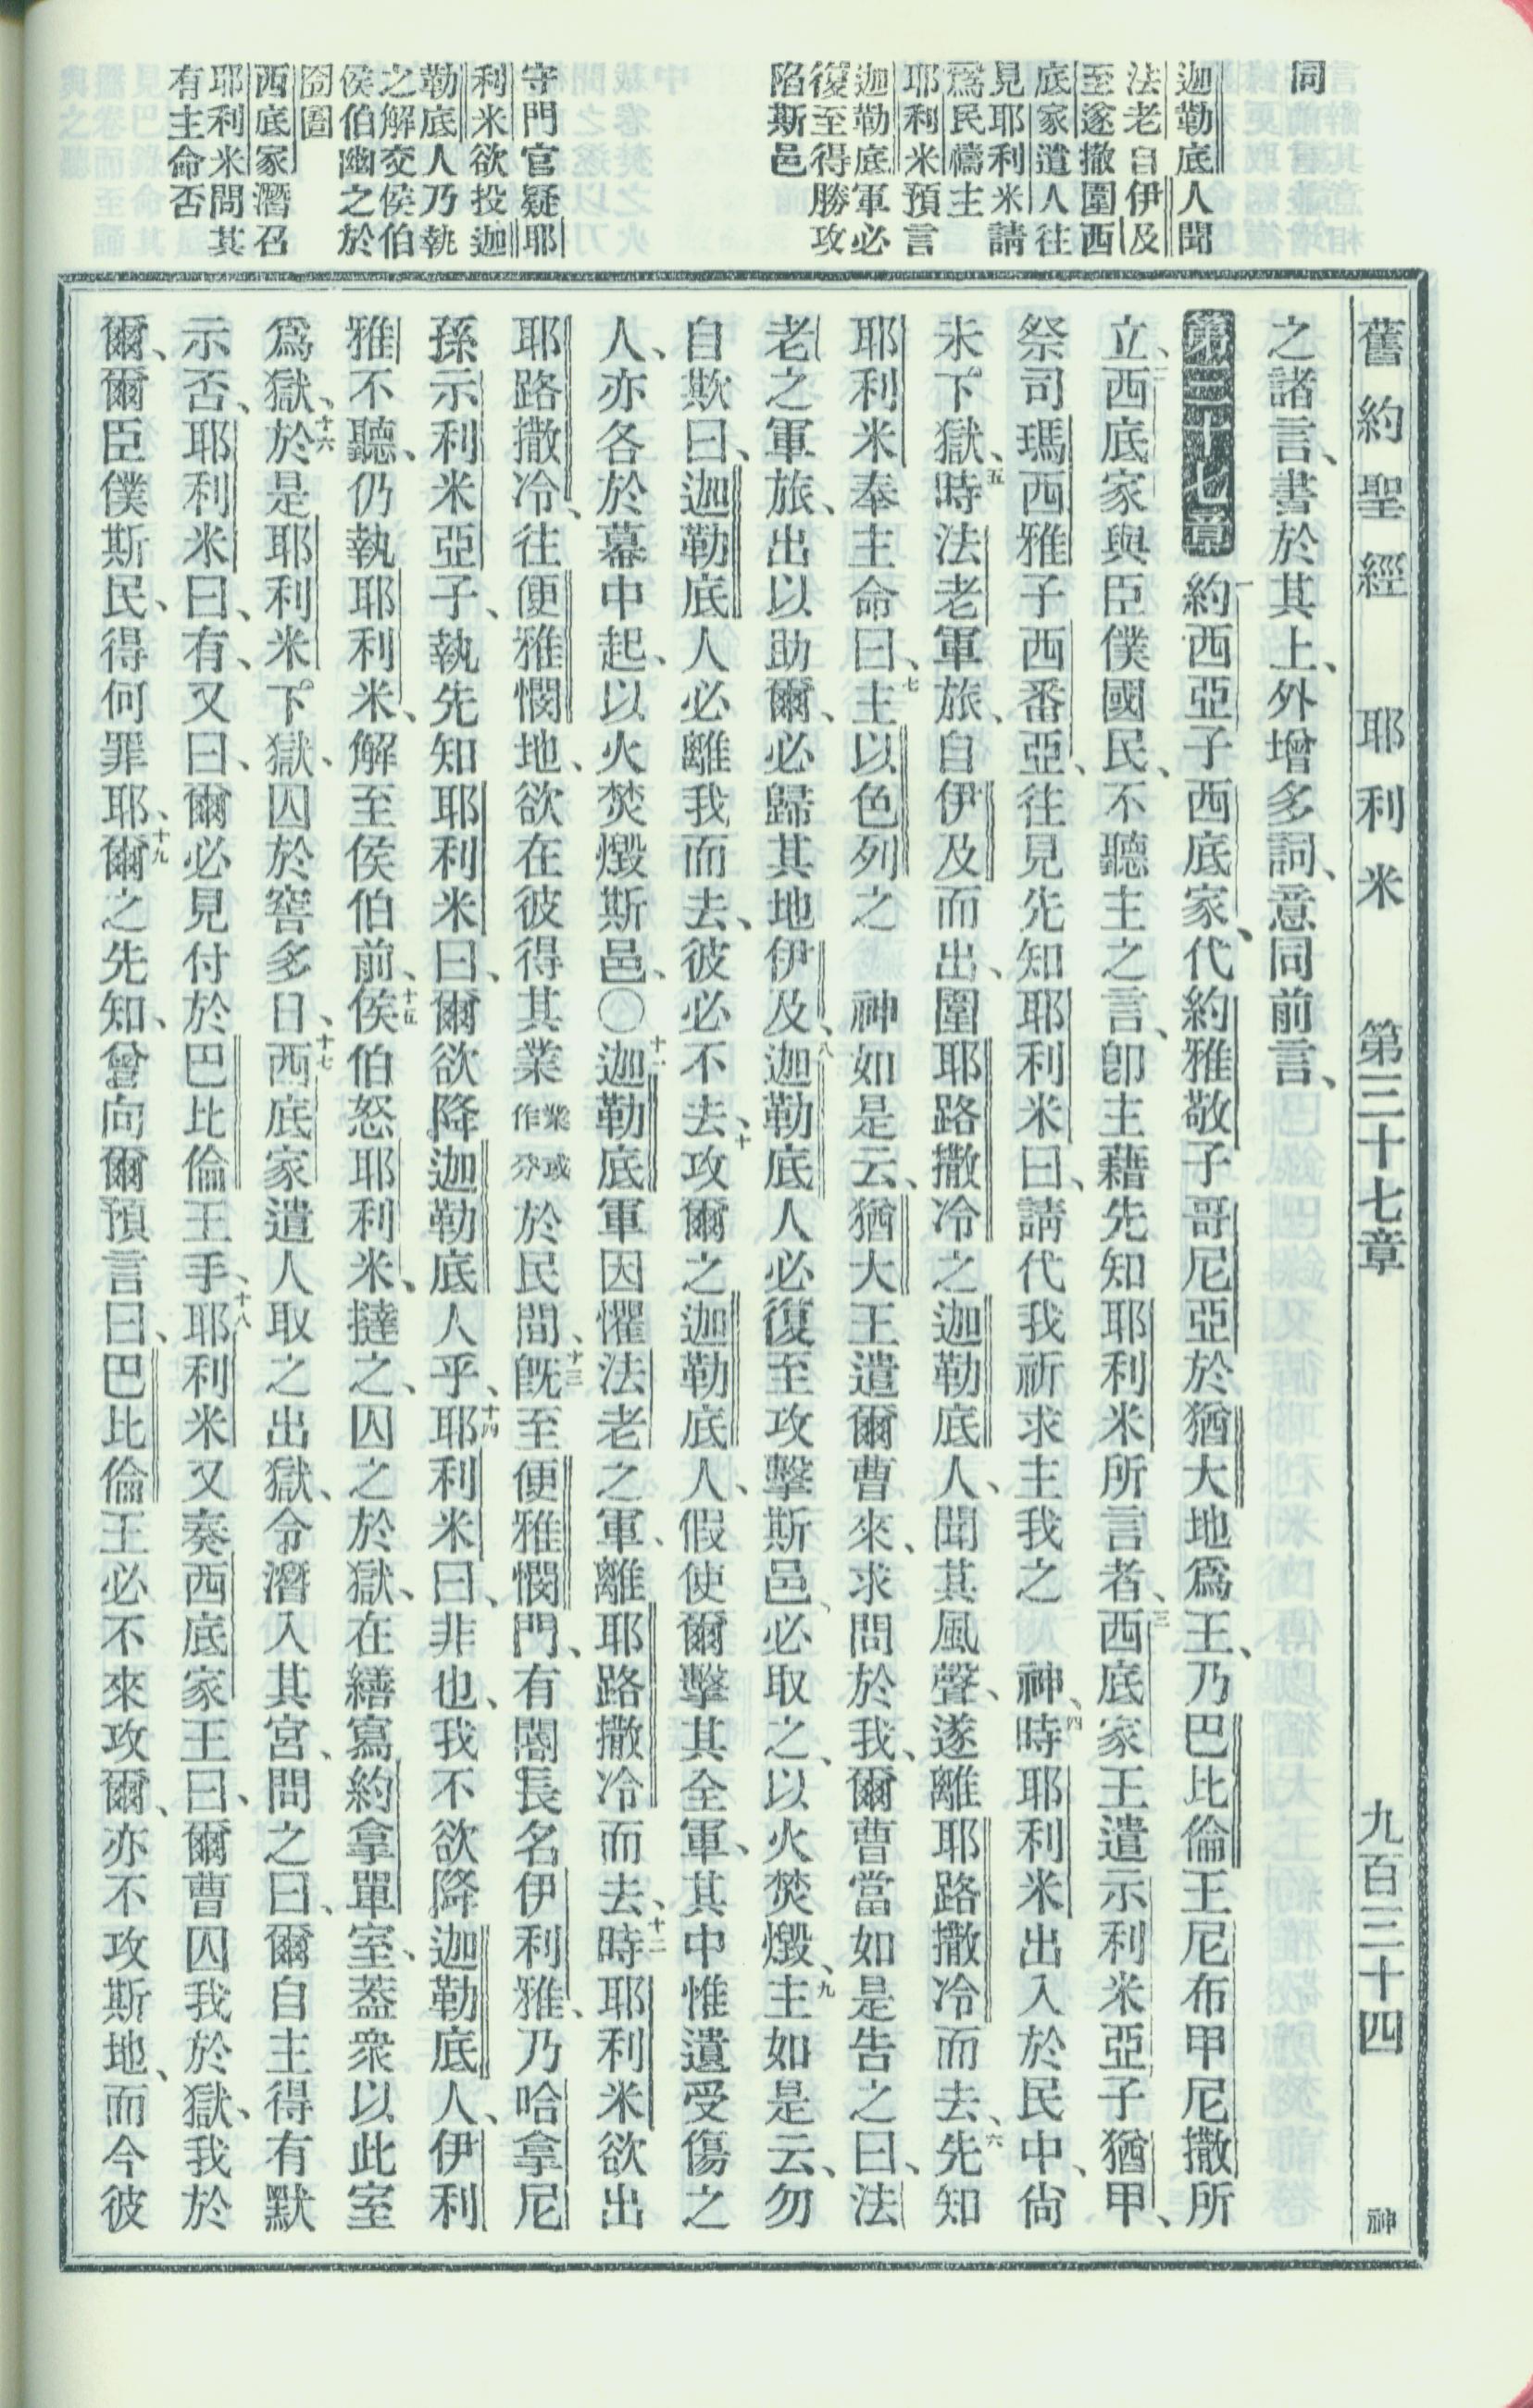 舊約聖經 耶利米 第三十七章 九百三十四 神
同
迦勒底人聞
法老自伊及
至遂撤圍西
底家遣人往
見耶利米請
爲民禱主
耶利米預言
迦勒底軍必
復至得勝攻
陷斯邑
守門官疑耶
利米欲投迦
勒底人乃執
之解交侯伯
侯伯幽之於
囹圄
西底家潛召
耶利米問其
有主命否
之諸言、書於其上、外增多詞、意同前言、
第三十七章 一約西亞子西底家、代約雅敬子哥尼亞於猶大地爲王、乃巴比倫王尼布甲尼撒所
立、二西底家與臣僕國民、不聽主之言、卽主藉先知耶利米所言者、三西底家王遣示利米亞子猶甲、
祭司瑪西雅子西番亞、往見先知耶利米曰、請代我祈求主我之 神、四時耶利米出入於民中、尙
未下獄、五時法老軍旅、自伊及而出、圍耶路撒冷之迦勒底人、聞其風聲、遂離耶路撒冷而去、六先知
耶利米奉主命曰、七主以色列之 神如是云、猶大王遣爾曹來、求問於我、爾曹當如是告之曰、法
老之軍旅、出以助爾、必歸其地伊及、八迦勒底人必復至攻擊斯邑、必取之、以火焚燬、九主如是云、勿
自欺曰、迦勒底人必離我而去、彼必不去、十攻爾之迦勒底人、假使爾擊其全軍、其中惟遺受傷之
人、亦各於幕中起、以火焚燬斯邑、〇十一迦勒底軍因懼法老之軍、離耶路撒冷而去、十二時耶利米欲出
耶路撒冷、往便雅憫地、欲在彼得其業業或作分於民間、十三旣至便雅憫門、有閽長名伊利雅、乃哈拿尼
孫示利米亞子、執先知耶利米曰、爾欲降迦勒底人乎、十四耶利米曰、非也、我不欲降迦勒底人、伊利
雅不聽、仍執耶利米、解至侯伯前、十五侯伯怒耶利米、撻之、囚之於獄、在繕寫約拿單室、蓋衆以此室
爲獄、十六於是耶利米下獄、囚於窖多日、十七西底家遣人取之出獄、令潛入其宮、問之曰、爾自主得有默
示否、耶利米曰、有、又曰、爾必見付於巴比倫王手、十八耶利米又奏西底家王曰、爾曹囚我於獄、我於
爾、爾臣僕斯民、得何罪耶、十九爾之先知、曾向爾預言曰、巴比倫王必不來攻爾、亦不攻斯地、而今彼